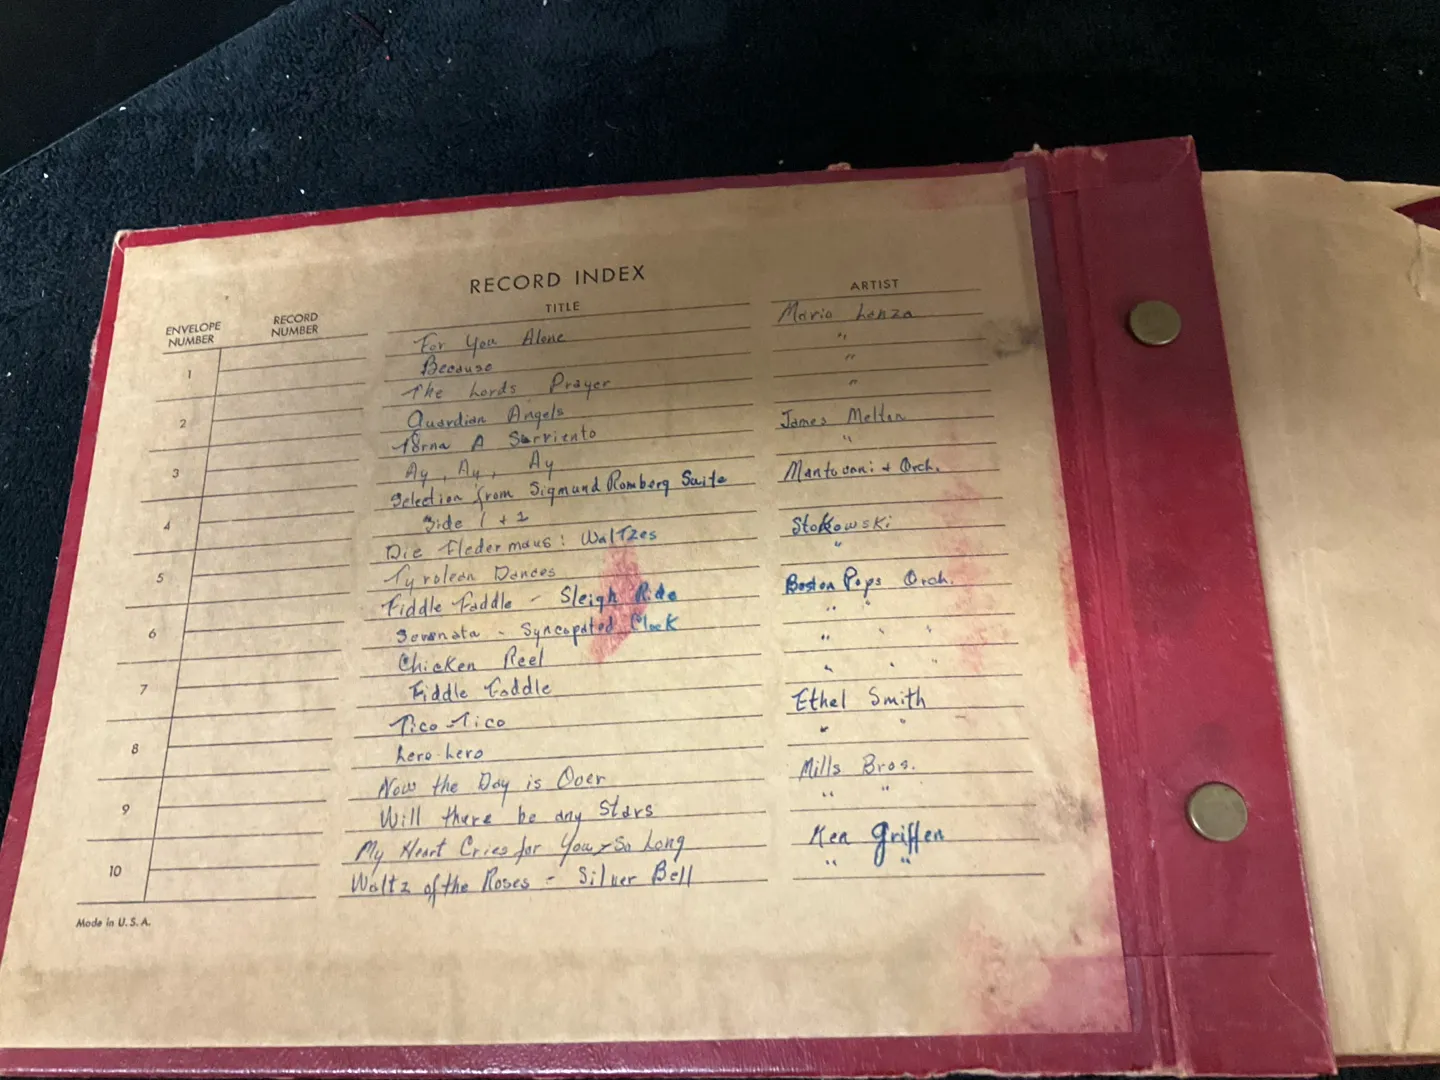 RECORD INDEX
ENVELOPE NUMBER RECORD NUMBER TITLE ARTIST
For You Alone Mario Lanza
1 Because "
The Lords Prayer "
2 Guardian Angels "
Torna A Sorriento James Melton
3 Ay, Ay, Ay "
Selection from Sigmund Romberg Suite Mantovani + Orch.
4 Side 1 + 2
Die Fledermaus: Waltzes Stokowski
5 Tyrolean Dances "
Fiddle Faddle - Sleigh Ride Boston Pops Orch.
6 Serenata - Syncopated Clock " "
Chicken Reel " " "
7 Fiddle Faddle " " "
Tico-Tico Ethel Smith
8 Lero-Lero " "
Now the Day is Over Mills Bros.
9 Will there be any Stars " "
My Heart Cries for You - So Long Ken Griffen
10 Waltz of the Roses - Silver Bell " "
Made in U.S.A.